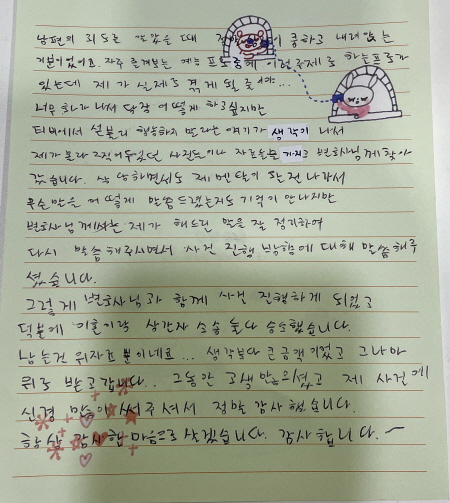 남편의 외도를 알았을 때 정말 하늘이 쿵하고 내려앉는
기분이었어요. 자주 즐겨보는 예능 프로중에 이런주제로 하는프로가
있는데 제가 실제로 겪게 될 줄이야...
너무 화가 나서 당장 어떻게 하고싶지만
티비에서 섣불리 행동하지 말라는 얘기가 생각이 나서
제가 몰라 찍어두었던 사진들이나 자료들을 가지고 변호사님께 찾아
갔습니다. 상담하면서도 제 멘탈이 완전 나가서
무슨말은 어떻게 말씀드렸는지도 기억이 안나지만
변호사님께서는 제가 해드린 말을 잘 정리하여
다시 말씀해주시면서 사건 진행 방향에 대해 말씀해주
셨습니다.
그렇게 변호사님과 함께 사건 진행하게 되었고
덕분에 이혼이랑 상간자 소송 둘다 승소했습니다.
남는건 위자료 뿐이네요... 생각보다 큰금액이었고 그나마
위로 받고갑니다. 그동안 고생많으셨고 제 사건에
신경 많이 써주셔서 정말 감사했습니다.
항상 감사한 마음으로 살겠습니다. 감사합니다.~